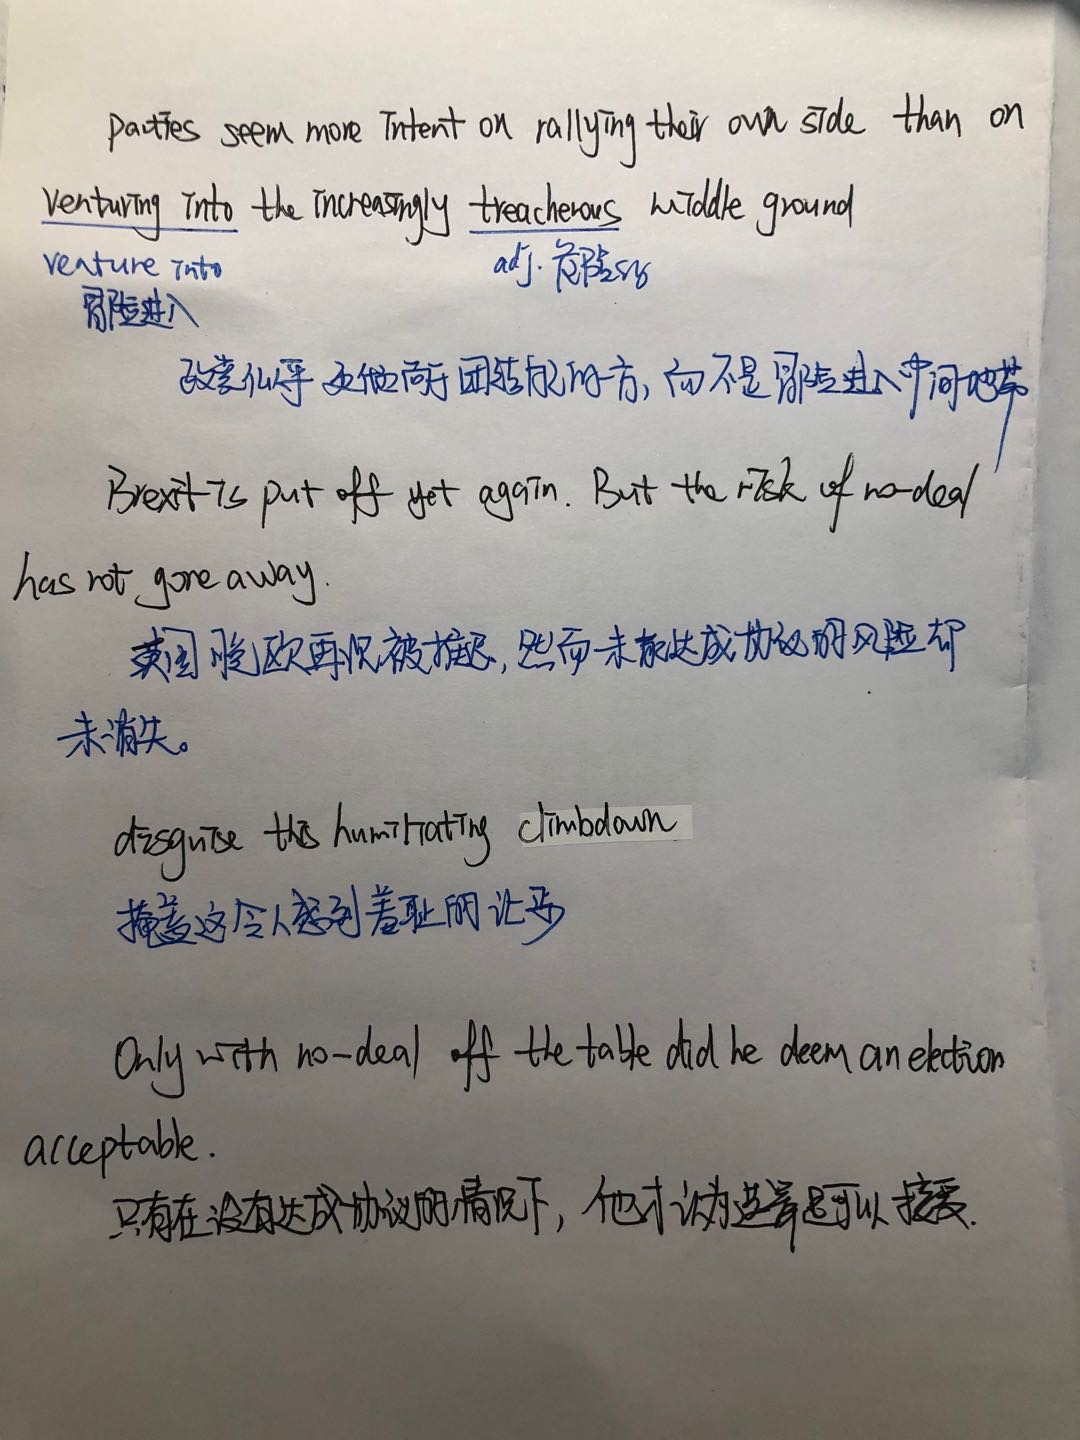 parties seem more intent on rallying their own side than on
venturing into the increasingly treacherous middle ground
venture into
adj. 危险的
冒险进入
政党似乎更倾向于团结的一方，而不是冒险进入中间地带
Brexit is put off yet again. But the risk of no-deal
has not gone away.
英国脱欧再次被推迟，然而未能达成协议的风险却
未消失。
disguise this humiliating climbdown
掩盖这令人感到羞耻的让步
Only with no-deal off the table did he deem an election
acceptable.
只有在没有达成协议的情况下，他才认为选举是可以接受.